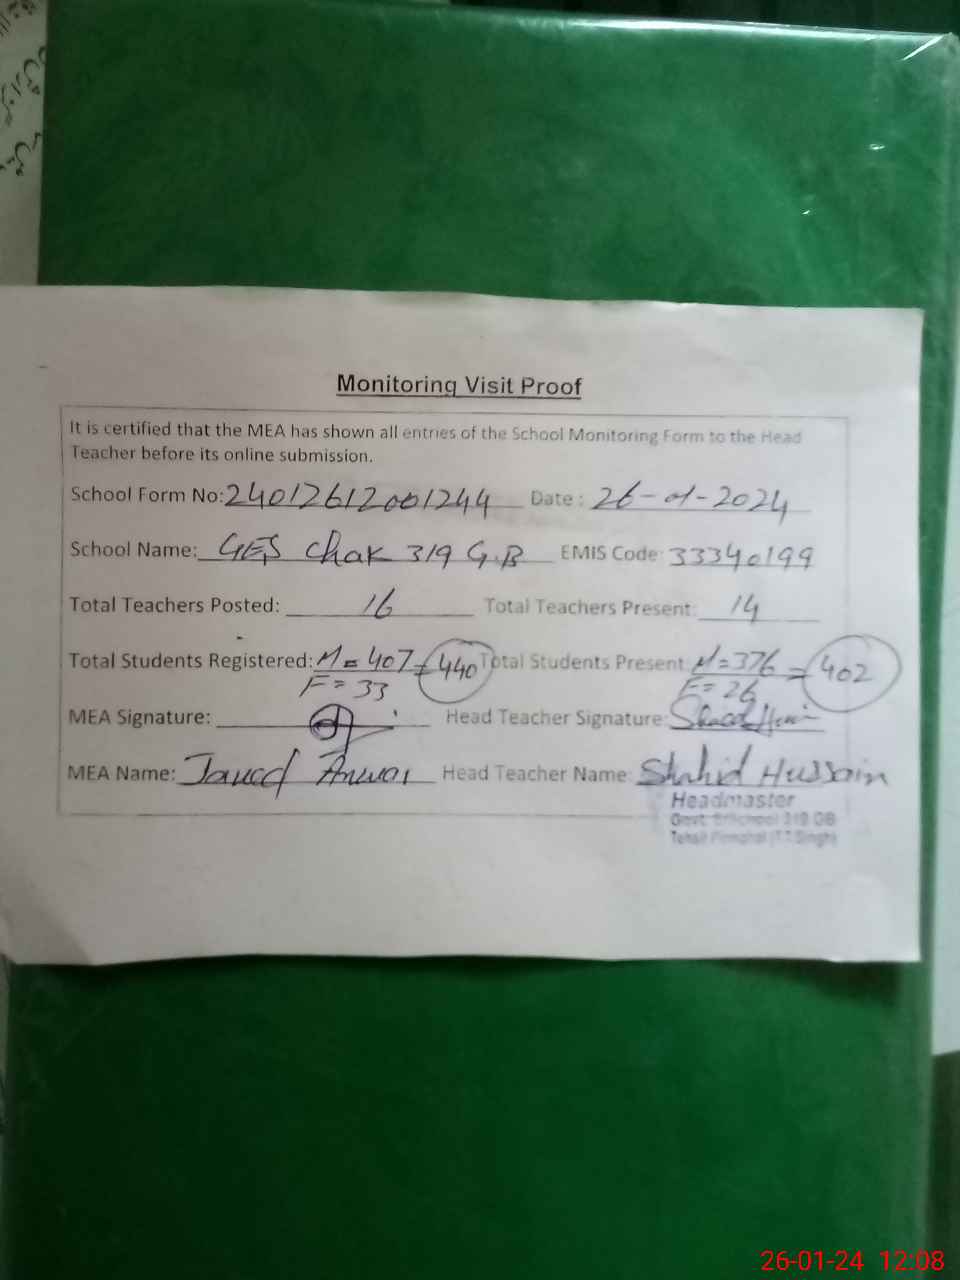 Monitoring Visit Proof
It is certified that the MEA has shown all entries of the School Monitoring Form to the Head
Teacher before its online submission.
School Form No: 24012612001244 Date: 26-01-2024
School Name: GES Chak 319 G.B EMIS Code: 33340199
Total Teachers Posted: 16 Total Teachers Present: 14
Total Students Registered: M = 407 = 440 Total Students Present: M = 376 = 402
F = 33 F = 26
MEA Signature: Head Teacher Signature:
MEA Name: Javed Anwar Head Teacher Name: Shahid Hussain
Headmaster
Govt. School 319 GB
Tehsil (T.T.Singh)
26-01-24 12:08